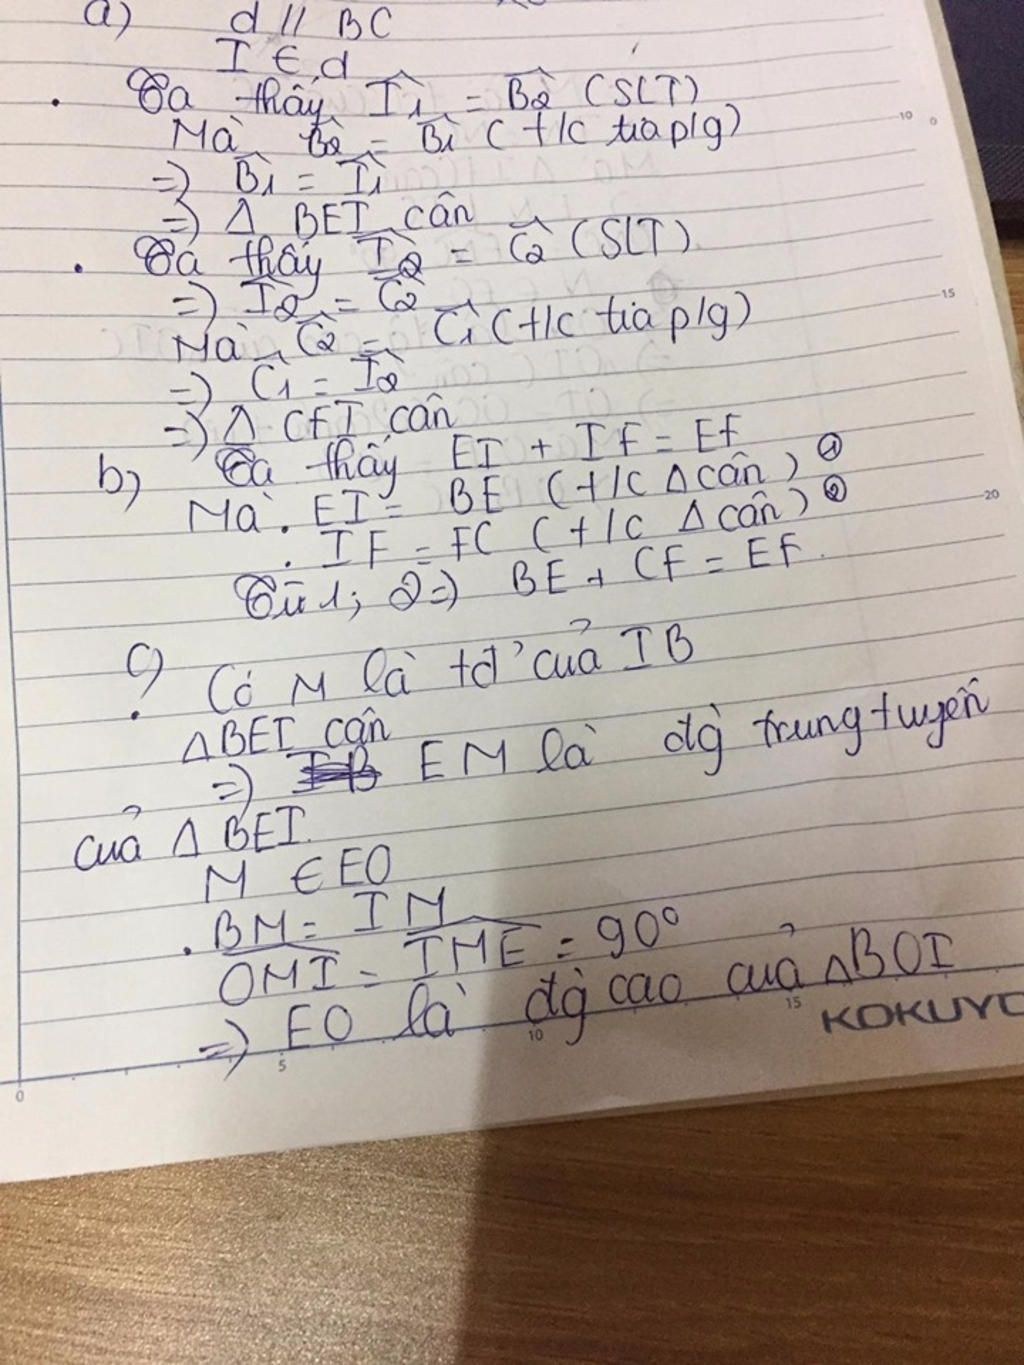 a) d // BC
I ∈ d
. Ta thấy Î₁ = B̂₂ (SLT)
Mà B̂₂ = B̂₁ (t/c tia p/g)
=) B̂₁ = Î₁
=) Δ BEI cân
. Ta thấy Î₂ = Ĉ₂ (SLT)
=) Î₂ = Ĉ₂
Mà Ĉ₂ = Ĉ₁ (t/c tia p/g)
=) Ĉ₁ = Î₂
=) Δ CFI cân
b) Ta thấy EI + IF = EF
Mà . EI = BE (t/c Δ cân) ①
. IF = FC (t/c Δ cân) ②
Từ 1; 2 =) BE + CF = EF.
c) Có M là tđ' của IB
. ΔBEI cân
=) EM là đg trung tuyến
của Δ BEI.
M ∈ EO
. BM = IM
OMI = IME = 90°
=) EO là đg cao của ΔBOI
10
15
20
0
5
10
15
KOKUYO